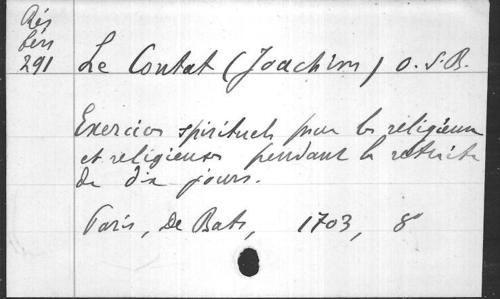 Rés
Lév
291
Le Contat (Joachim) O.S.B.
Exercices spirituels pour les religieux
et religieuses pendant la retraite
de dix jours.
Paris, De Bats, 1703, 8°